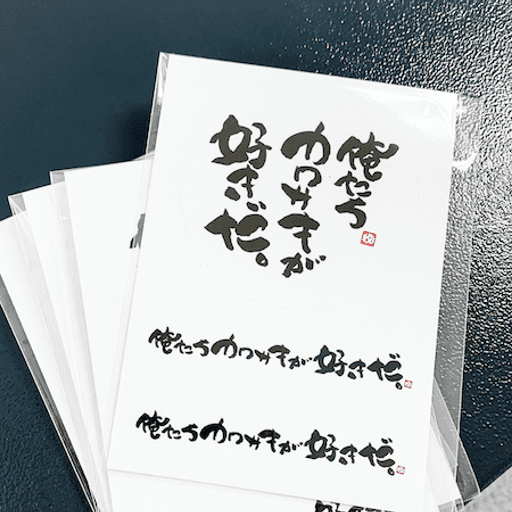 俺たち
カワサキが
好きだ。
俺たちカワサキが好きだ。
俺たちカワサキが好きだ。